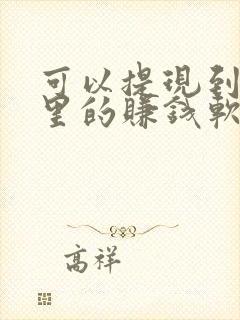 可以提現到
里的賺錢軟
高祥